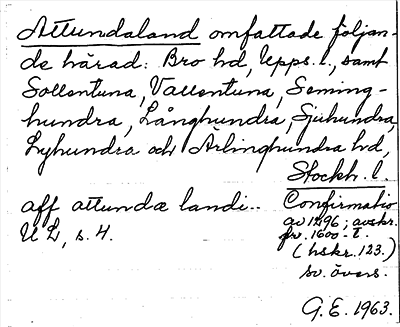 Attundaland omfattade följan-
de härad: Bro hd, Upps. l., samt
Sollentuna, Vallentuna, Seming-
hundra, Långhundra, Sjuhundra,
Lyhundra och Ärlinghundra hd,
Stockh. l.
aff attundæ landi.. Confirmatio
av 1296; avskr.
U L, s. 4. fr. 1600-t.
(hskr. 123.)
sv. övers.
G. E. 1963.